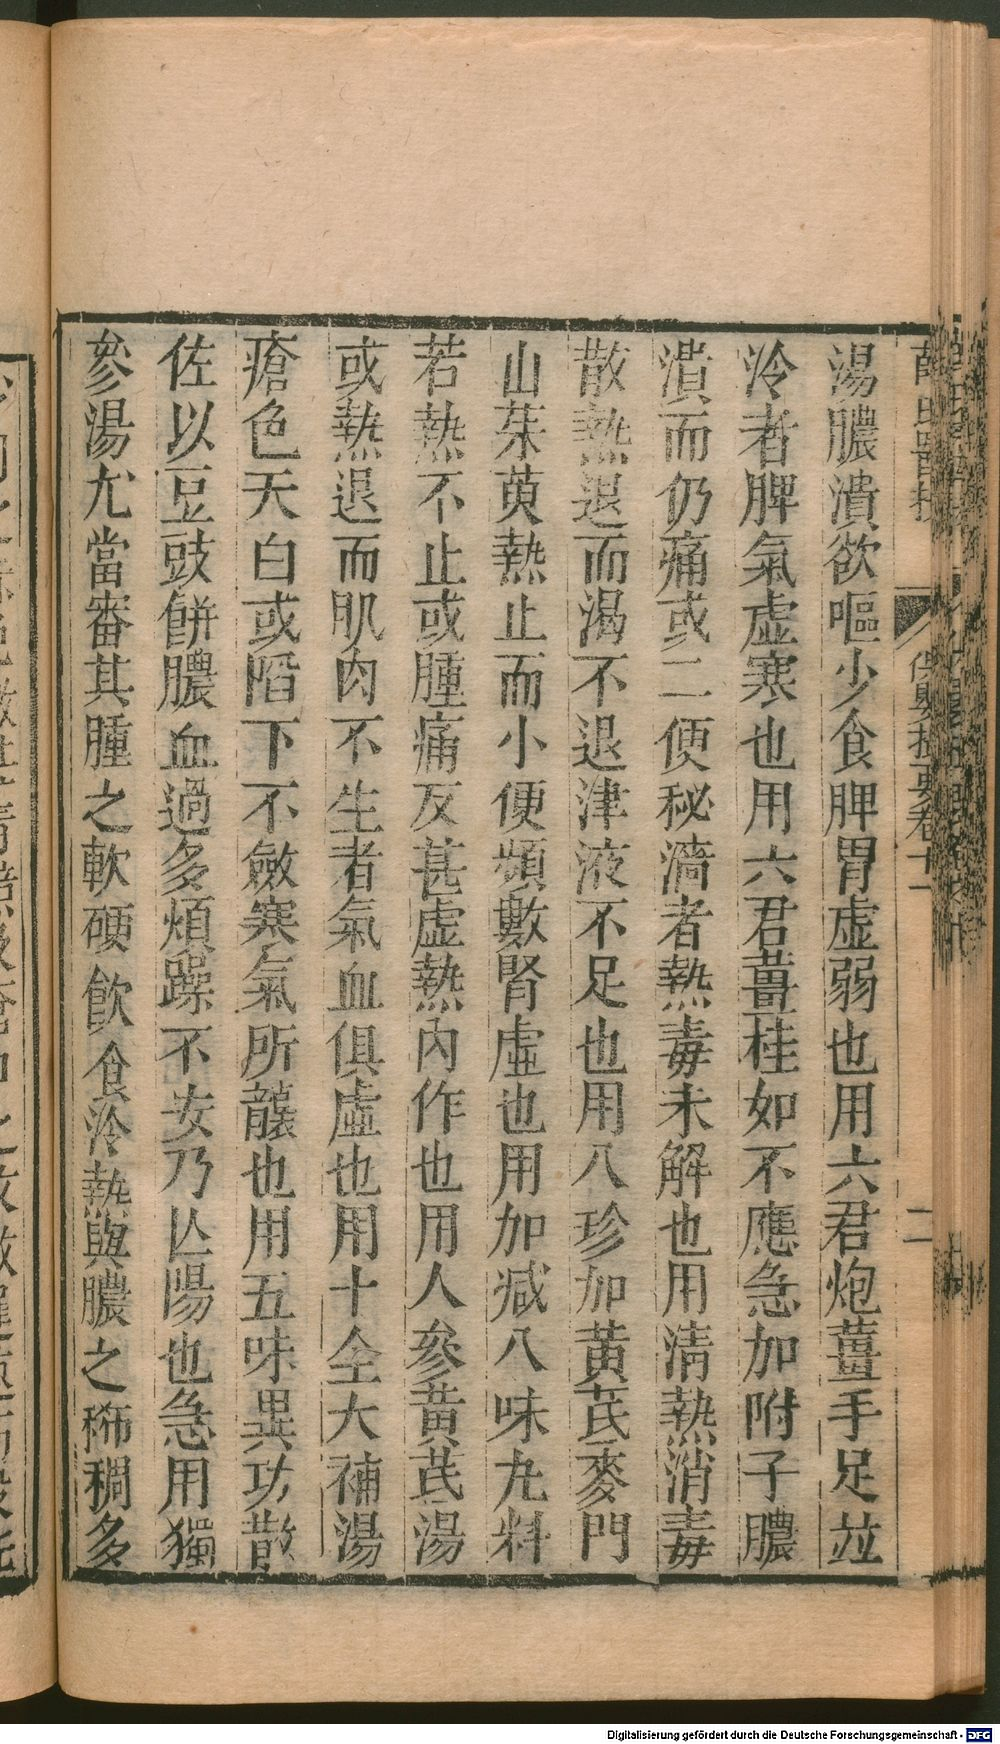 湯膿潰欲嘔少食脾胃虛弱也用六君炮薑手足並
冷者脾氣虛寒也用六君薑桂如不應急加附子膿
潰而仍痛或二便秘濇者熱毒未解也用清熱消毒
散熱退而渴不退津液不足也用八珍加黃芪麥門
山茱萸熱止而小便頻數腎虛也用加減八味丸料
若熱不止或腫痛反甚虛熱內作也用人參黃芪湯
或熱退而肌肉不生者氣血俱虛也用十全大補湯
瘡色夭白或陷下不斂寒氣所襲也用五味異功散
佐以豆豉餅膿血過多煩躁不安乃亾陽也急用獨
參湯尤當審其腫之軟硬飲食冷熱與膿之稀稠多
保嬰撮要卷十一
二
Digitalisierung gefördert durch die Deutsche Forschungsgemeinschaft - DFG